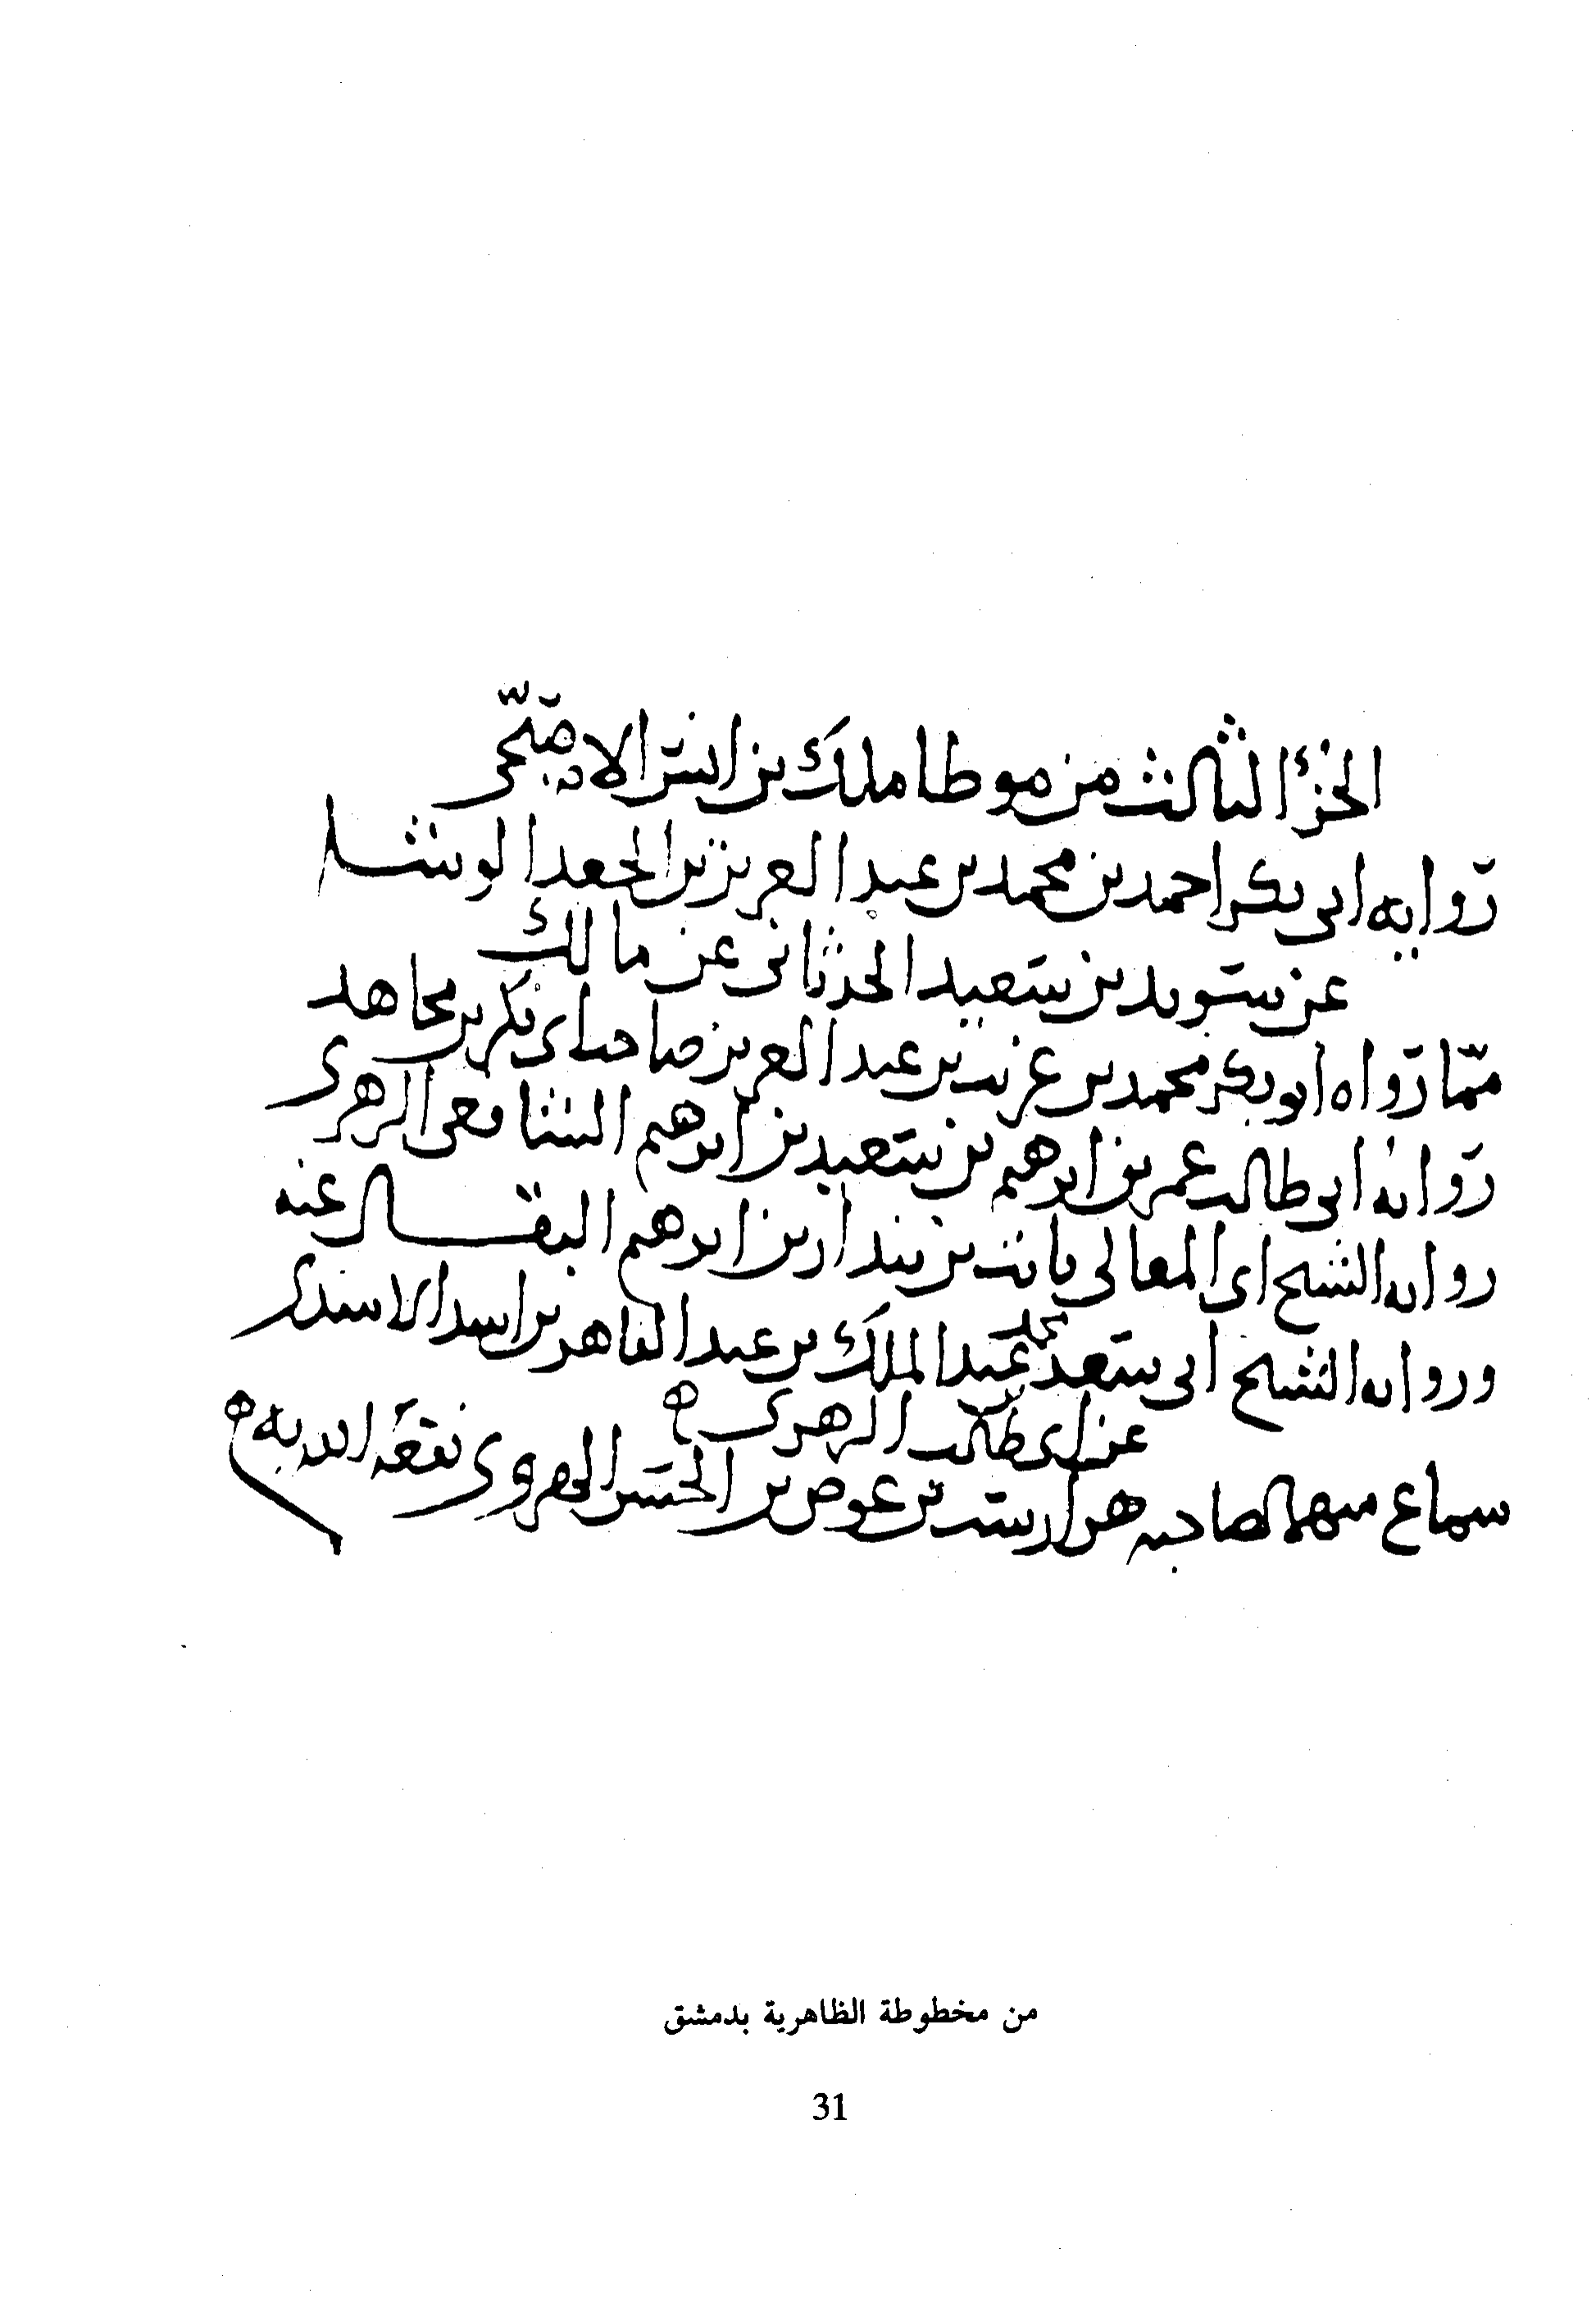 الجزء الثالث من موطا ملك بن انس الاصبحى
رواية ابى بكر احمد بن محمد بن عبد العزيز بن الجعد الوشا
عن سويد بن سعيد الحدثانى عن مالك
مما رواه ابو بكر محمد بن غريب بن عبد العزيز صاحب ابى بكر بن مجاهد
رواية ابى طالب عمر بن ابرهيم بن سعيد بن ابرهيم الشافعى الزهرى
رواية الشيخ ابى المعالى ثابت بن بندار بن ابرهيم البقال عنه
ورواية الشيخ ابى سعد محمد بن عبد الملك بن عبد القاهر بن اسد الاسدى
عن ابى طالب الزهرى
سماع منهما لصاحبه هزارسب بن عوض بن الحسن الهروى نفعه الله به
من مخطوطة الظاهرية بدمشق
31